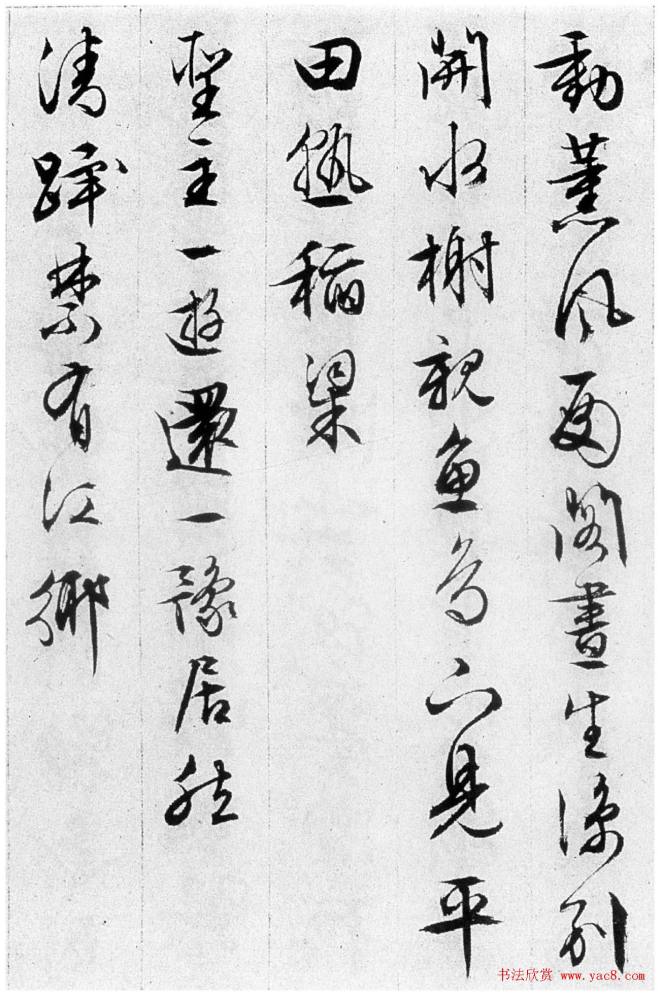 動薰風閣晝生涼別
開水榭親魚鳥下見平
田熟稻粱
聖主一遊還一豫居然
清蹕禁有江鄉
书法欣赏 www.yac8.com